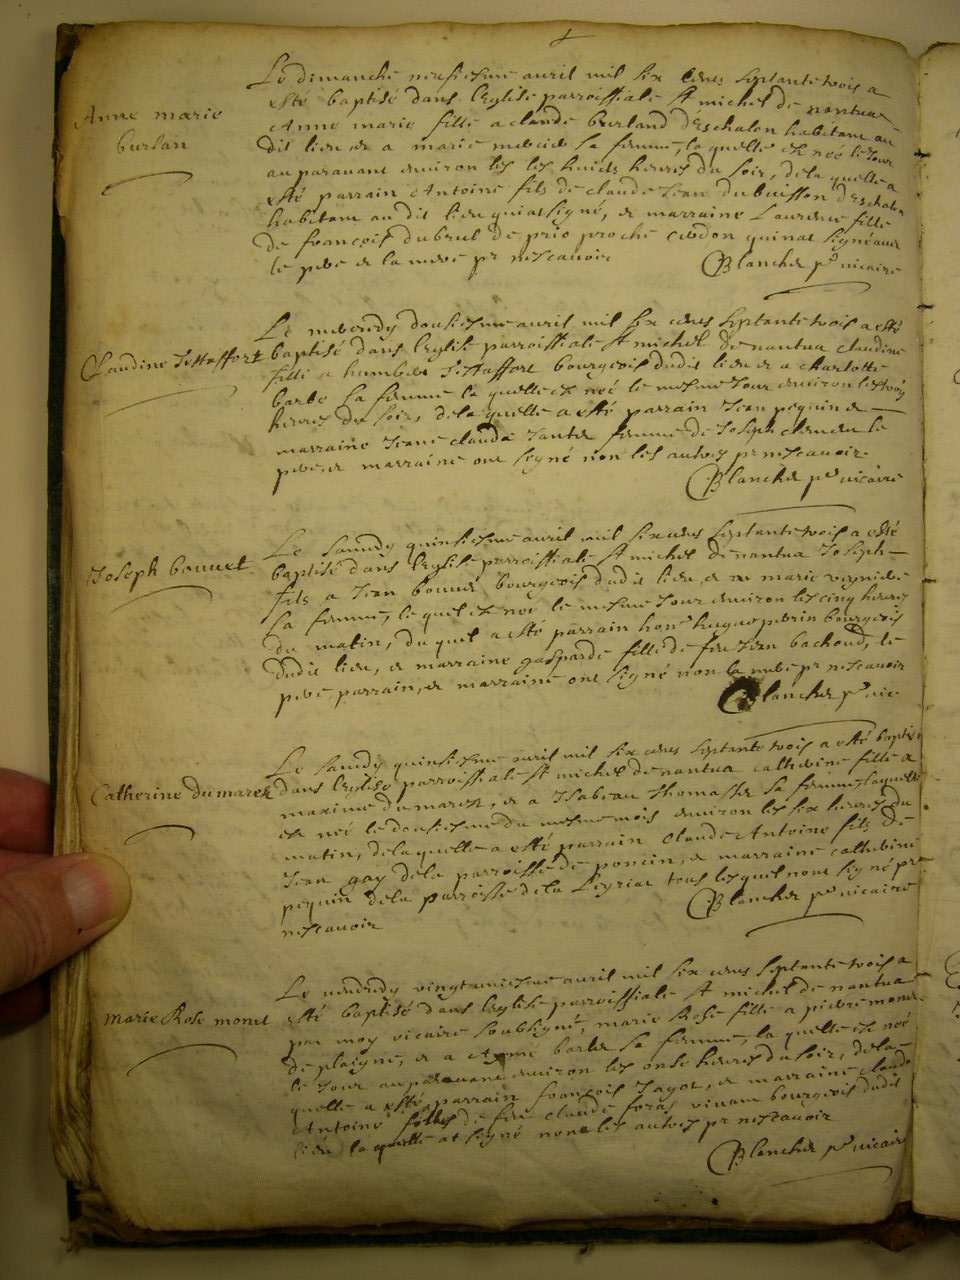 Anne marie
burlan
Le dimanche neufiesme auril mil six cens septante trois a
esté baptisé dans l'eglise parroissiale St michel de nantua
Anne marie fille a claude burland d'Eschalon habitant au
dit lieu et a marie sa femme, la quelle est née le jour
auparauant enuiron les huict heures du soir, de la quelle a
esté parrain Antoine fils de claude Jean dubuisson d'Eschalon
habitant au dit lieu qui at signé, et marraine Laurence fille
de françois dubrul de prio proche cerdon qui n'at signé auec
le pere et la mere pr ne scauoir
Blanchet ptre vicaire
Claudine
Le mercredy dousiesme auril mil six cens septante trois a esté
baptisé dans l'eglise parroissiale St michel de nantua claudine
fille a humbert bourgeois dudit lieu et a charlotte
barbe sa femme la quelle est née le mesme jour enuiron les trois
heures du soir, de la quelle a esté parrain Jean pequin et
marraine Jeane claude femme de Joseph le
pere et marraine ont segné non les autres pr ne scauoir
Blanchet ptre vicaire
Joseph bonnet
Le samedy quinsiesme auril mil six cens septante trois a esté
baptisé dans l'eglise parroissiale St michel de nantua Joseph
fils a Jean bonnet bourgeois dudit lieu, et a marie
sa femme, le quel est né le mesme jour enuiron les cinq heures
du matin, du quel a esté parrain hon. hugue perrin bourgeois
dudit lieu, et marraine gasparde fille de feu Jean bachod, le
pere parrain, et marraine ont signé non la mere pr ne scauoir
Blanchet ptre vic.
Catherine dumarest
Le samedy quinsiesme auril mil six cens septante trois a esté baptisé
dans l'eglise parroissiale St michel de nantua catherine fille a
maxime dumarest, et a Isabeau Thomasset sa femme, laquelle
est née le dousiesme du mesme mois enuiron les six heures du
matin, de la quelle a esté parrain claude Antoine fils de
Jean gay de la parroisse de poncin, et marraine catherine
pequin de la parroisse de la Leyriat tous lesquel n'ont signé pr
ne scauoir
Blanchet ptre vicaire
marie Rose monet
Le vendredy vingt uniesme auril mil six cens septante trois a
esté baptisé dans l'eglise parroissiale St michel de nantua
par moy vicaire soubsigné, marie Rose fille a pierre monet
de plaigne, et a Anne barbe sa femme, la quelle est née
le jour auparauant enuiron les onse heures du soir, de la
quelle a esté parrain françois Jagot, et marraine claude
Antoine filles de feu claude foras viuant bourgeois dudit
lieu la quelle at signé non les autres pr ne scauoir
Blanchet ptre vicaire